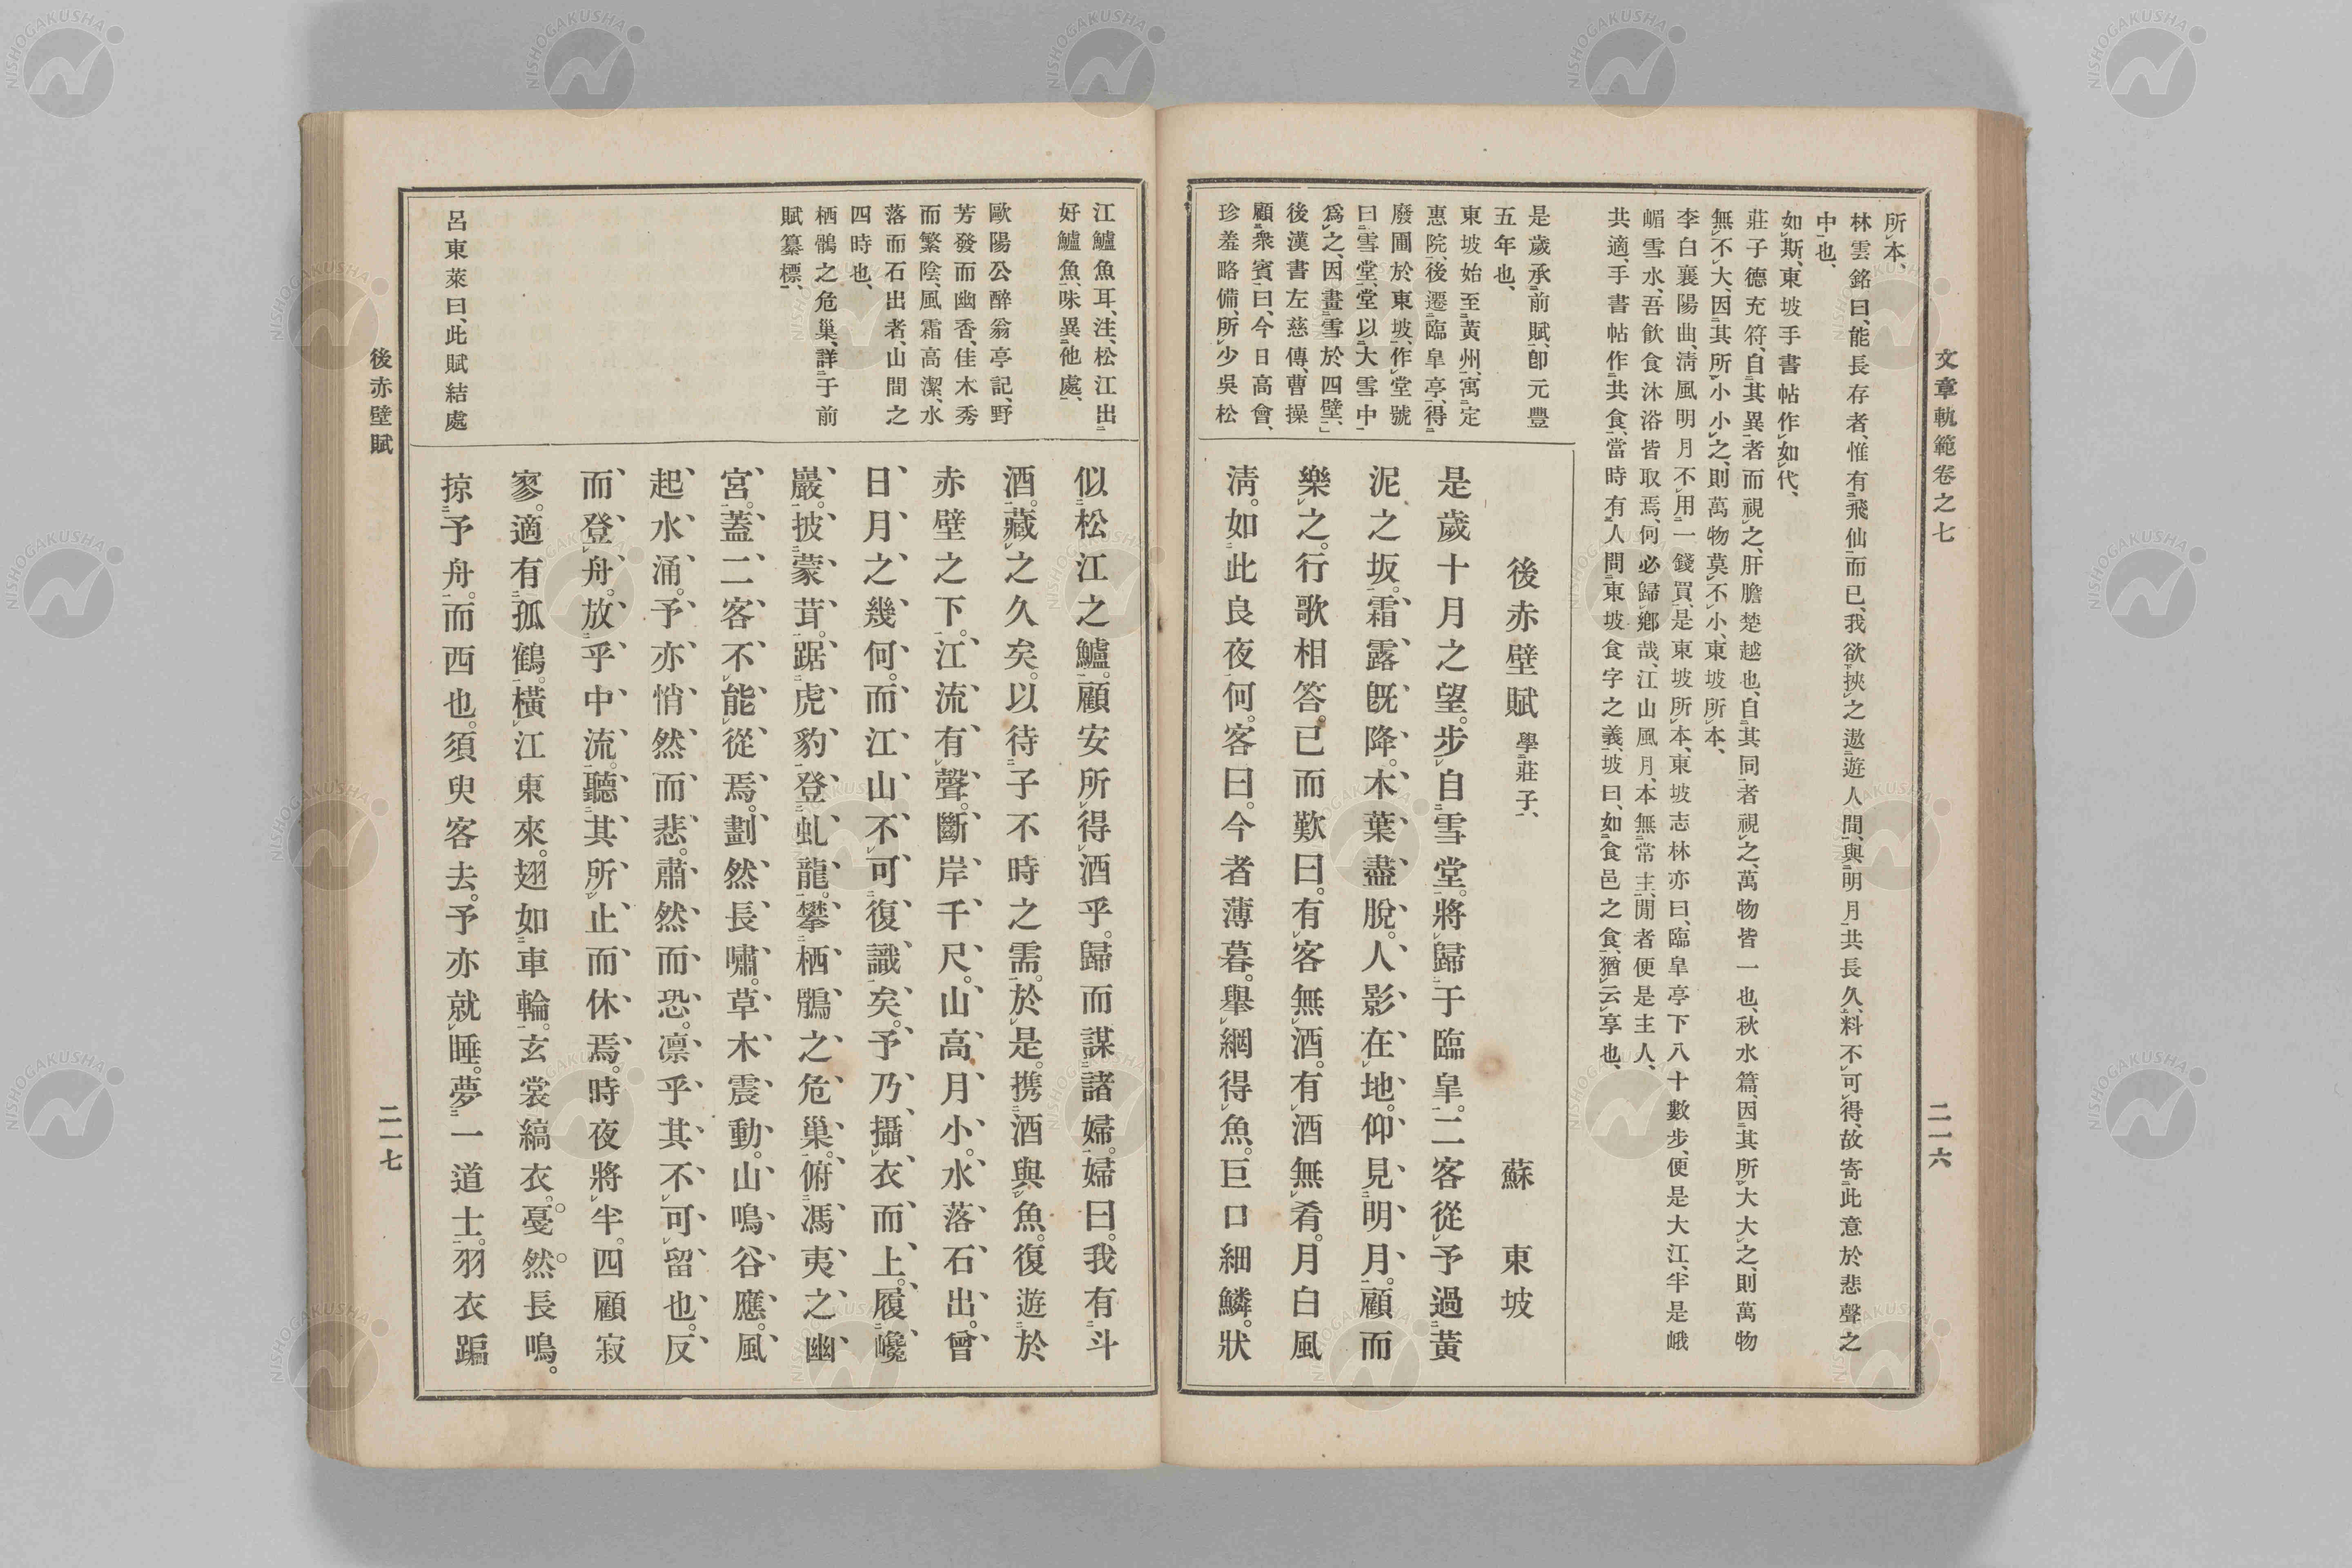 文章軌範卷之七
二一六
所本、
林雲銘曰、能長存者、惟有飛仙而已、我欲挾之遨遊人間、與明月共長久、料不可得、故寄此意於悲聲之
中也、
如斯、東坡手書帖作如代、
莊子德充符、自其異者而視之、肝膽楚越也、自其同者視之、萬物皆一也、秋水篇、因其所大大之、則萬物
無不大、因其所小小之、則萬物莫不小、東坡所本、
李白襄陽曲、淸風明月不用一錢買、是東坡所本、東坡志林亦曰、臨皐亭下八十數步、便是大江、半是峨
嵋雪水、吾飮食沐浴皆取焉、何必歸鄕哉、江山風月、本無常主、閒者便是主人、
共適、手書帖作共食、當時有人問東坡食字之義、坡曰、如食邑之食、猶云享也、
是歲承前賦、卽元豐
五年也、
東坡始至黃州、寓定
惠院、後遷臨皐亭、得
廢圃於東坡、作堂號
曰雪堂、堂以大雪中
爲之、因畫雪於四壁、」
後漢書左慈傳、曹操
顧衆賓曰、今日高會、
珍羞略備、所少吳松
後赤壁賦 學莊子、 蘇東坡
是歲十月之望。步自雪堂。將歸于臨皐。二客從予過黃
泥之坂。霜露旣降。木葉盡脫。人影在地。仰見明月。顧而
樂之。行歌相答。已而歎曰。有客無酒。有酒無肴。月白風
淸。如此良夜何。客曰。今者薄暮。舉網得魚。巨口細鱗。狀
江鱸魚耳、注、松江出
好鱸魚、味異他處、
歐陽公醉翁亭記、野
芳發而幽香、佳木秀
而繁陰、風霜高潔、水
落而石出者、山間之
四時也、
栖鶻之危巢、詳于前
賦纂標、
呂東萊曰、此賦結處
似松江之鱸。顧安所得酒乎。歸而謀諸婦。婦曰。我有斗
酒。藏之久矣。以待子不時之需。於是。携酒與魚。復遊於
赤壁之下。江流有聲。斷岸千尺。山高月小。水落石出。曾
日月之幾何。而江山不可復識矣。予乃攝衣而上。履巉
巖。披蒙茸。踞虎豹。登虬龍。攀栖鶻之危巢。俯馮夷之幽
宮。蓋二客不能從焉。劃然長嘯。草木震動。山鳴谷應。風
起水涌。予亦悄然而悲。肅然而恐。凛乎其不可留也。反
而登舟。放乎中流。聽其所止而休焉。時夜將半。四顧寂
寥。適有孤鶴。橫江東來。翅如車輪。玄裳縞衣。戞然長鳴。
掠予舟。而西也。須臾客去。予亦就睡。夢一道士。羽衣蹁
後赤壁賦
二一七
NISHOGAKUSHA